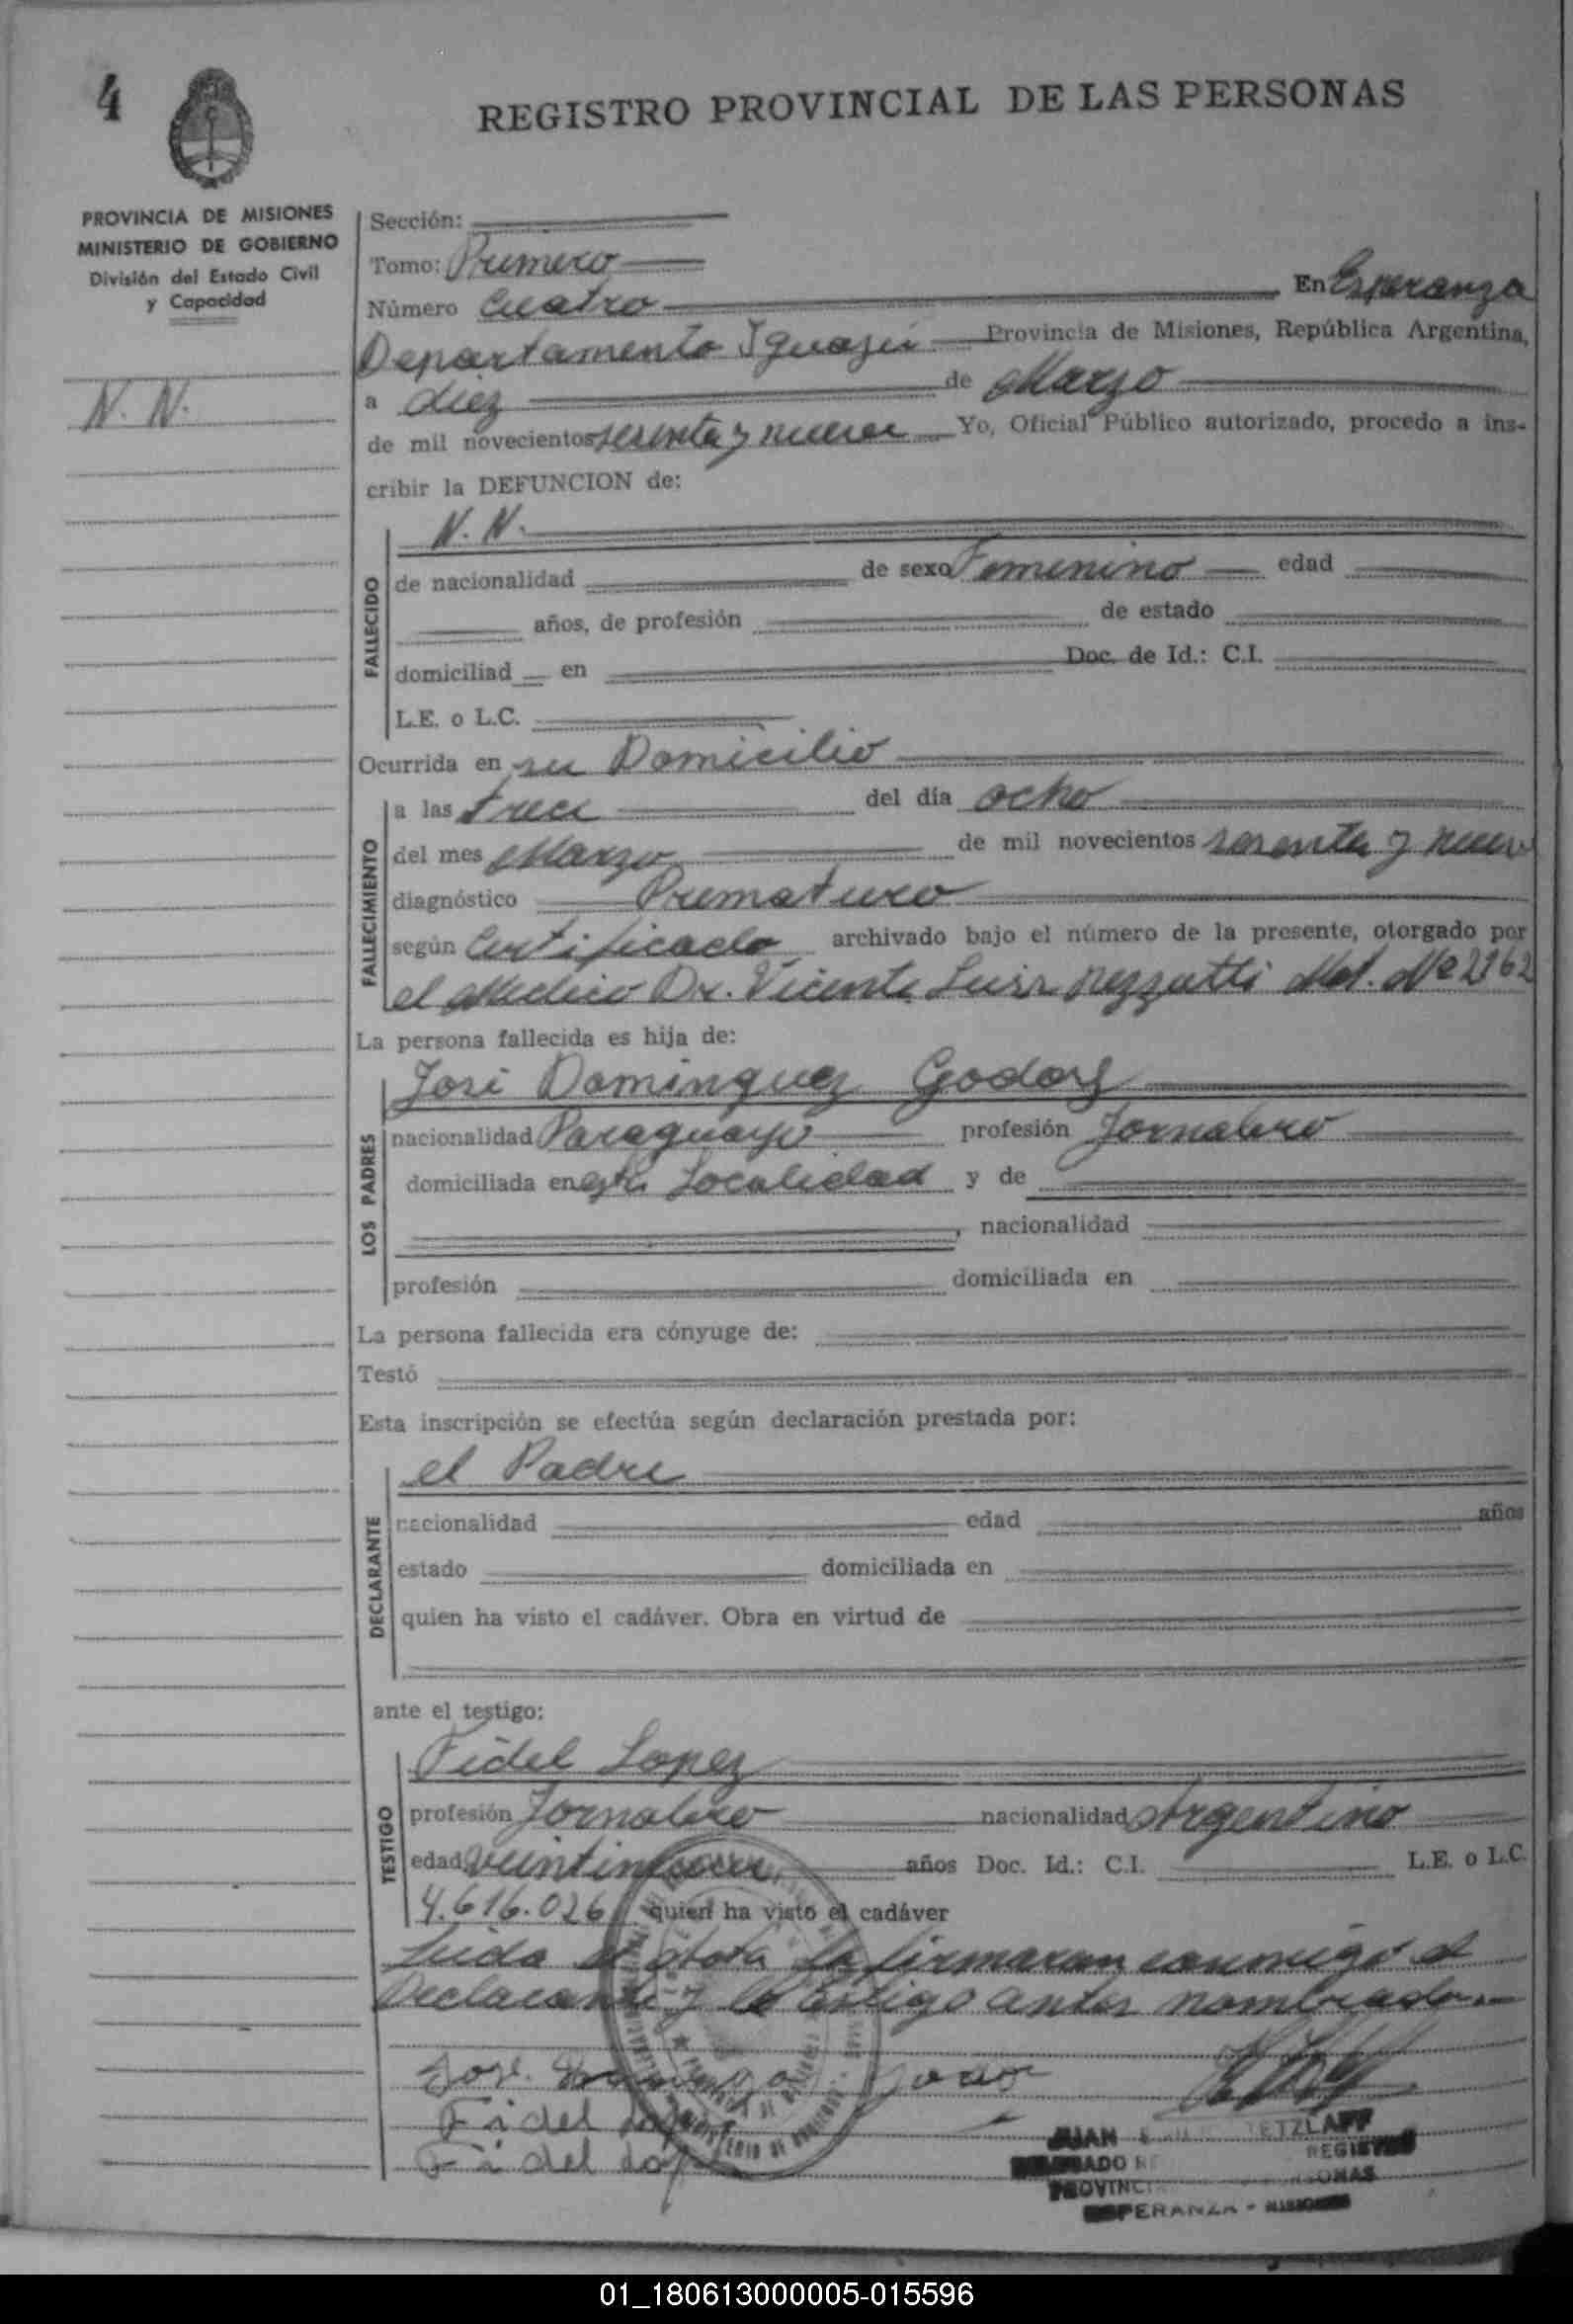 4
REGISTRO PROVINCIAL DE LAS PERSONAS
PROVINCIA DE MISIONES
MINISTERIO DE GOBIERNO
División del Estado Civil
y Capacidad
N. N.
Sección:
Tomo: Primero
Número Cuatro En Esperanza
Departamento Iguazú Provincia de Misiones, República Argentina,
a diez de Marzo
de mil novecientos sesenta y nueve Yo, Oficial Público autorizado, procedo a ins-
cribir la DEFUNCION de:
FALLECIDO
N. N.
de nacionalidad de sexo Femenino edad
años, de profesión de estado
domiciliad en Doc. de Id.: C.I.
L.E. o L.C.
Ocurrida en su Domicilio
FALLECIMIENTO
a las trece del día ocho
del mes Marzo de mil novecientos sesenta y nueve
diagnóstico Prematuro
según Certificado archivado bajo el número de la presente, otorgado por
el Medico Dr. Vicente Luis Mat. Nº 2162
La persona fallecida es hija de:
LOS PADRES
José Dominguez Godoy
nacionalidad Paraguayo profesión Jornalero
domiciliada en esta Localidad y de
, nacionalidad
profesión domiciliada en
La persona fallecida era cónyuge de:
Testó
Esta inscripción se efectúa según declaración prestada por:
DECLARANTE
el Padre
nacionalidad edad años
estado domiciliada en
quien ha visto el cadáver. Obra en virtud de
ante el testigo:
TESTIGO
Fidel Lopez
profesión Jornalero nacionalidad Argentino
edad años Doc. Id.: C.I. L.E. o L.C.
4.616.026 quien ha visto el cadáver
Leida el Acta la firmaran conmigo el
Declarante y el testigo antes nombrados.
José
Fidel
Fidel
JUAN ETZLAFF
REGIST
PROVINC ONAS
ESPERANZA - MISIONES
01_180613000005-015596